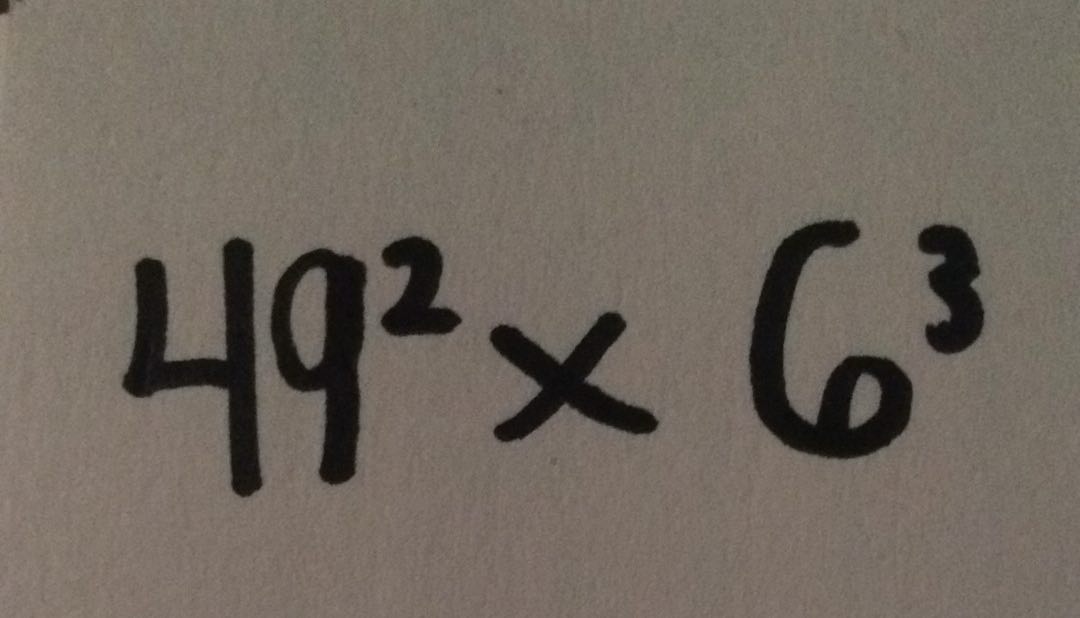 49² × 6³